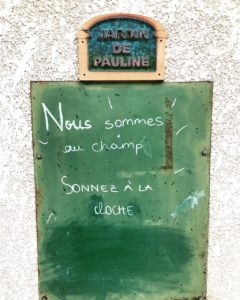 JARDIN
DE
PAULINE
Nous sommes
au champ
SONNEZ À LA
CLOCHE